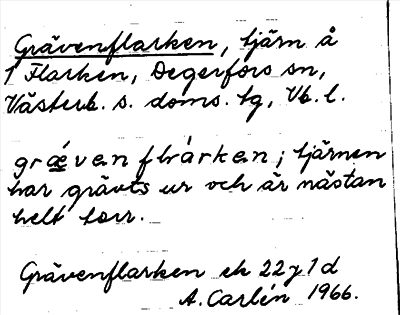 Grävenflarken, tjärn å
1 Flarken, Degerfors sn,
Västerb. s. doms. tg, Vb. l.
grǽvenflárken; tjärnen
har grävts ur och är nästan
helt torr.
Grävenflarken ek 22 j 1 d
A. Carlén 1966.